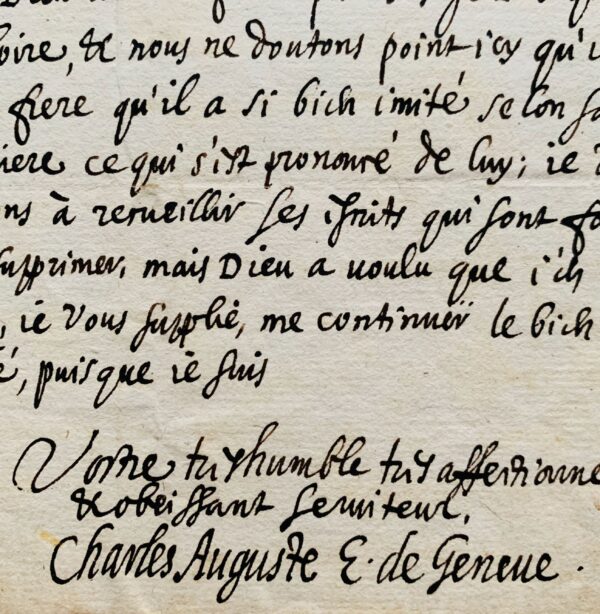 oire, & nous ne doutons point icy qu'i
frere qu'il a si bien imité selon sa
iere ce qui s'est prononcé de luy; ie
ns à recueillir ses escrits qui sont
supprimer, mais Dieu a uoulu que i'en
, ie vous supplie, me continuër le bien
é, puisque ie suis
Vostre treshumble tres affectionne
& obeissant seruiteur,
Charles Auguste E. de Geneue.